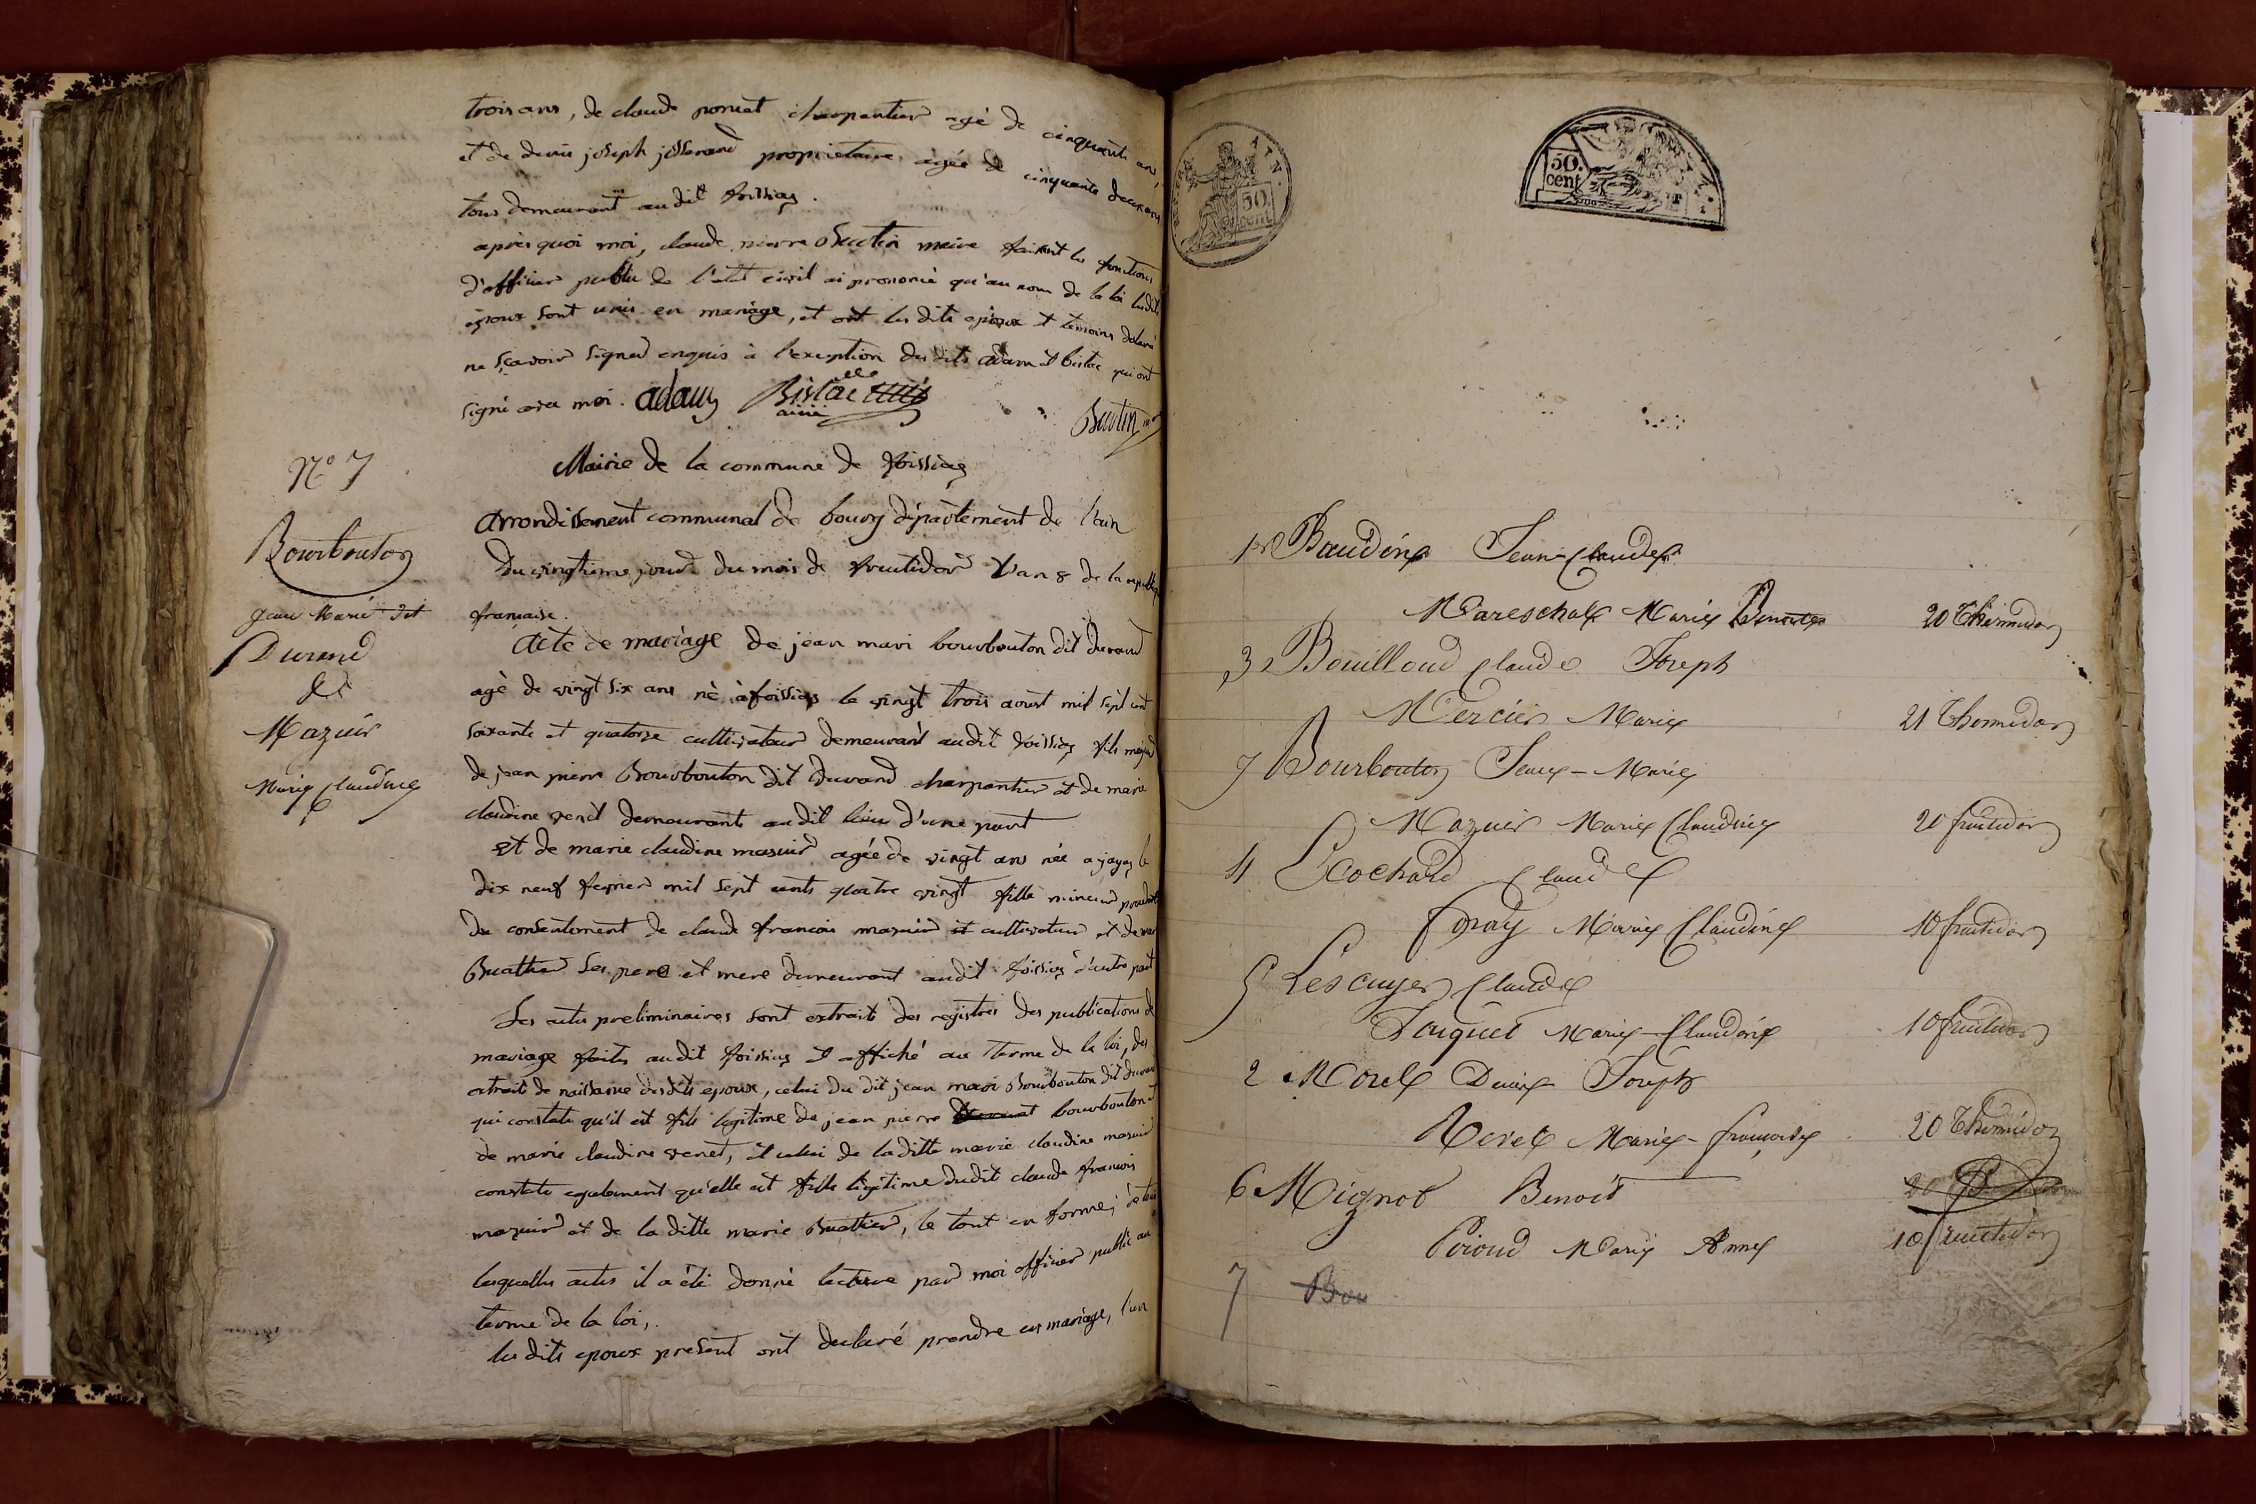 trois ans, de claude poncet charpentier agé de cinquante ans,
et de denis joseph josserand propriétaire agée de cinquante deux ans
tous demeurant au dit foissiag.
après quoi moi, claude pierre Buctin maire faisant les fonctions
d'officier public de l'etat civil ai prononcé qu'au nom de la loi lesdits
époux sont unis en mariage, et ont les dits epoux et temoins declaré
ne sçavoir signer enquis à l'exeption des dits adam et bistac qui ont
signé avec moi. adam Bislac
ainé
N° 7
Mairie de la commune de foissiag
Arrondissement communal de bourg département de l'ain
Bourbouton
Du vingtieme jour du mois de fructidor l'an 8 de la republ
francaise.
Jean Marie dit
Durand
&
Mazuir
Marie Claudine
Acte de mariage de jean mari bourbouton dit durand
agé de vingt six ans né à foissiag le vingt trois aoust mil sept cent
soixante et quatorze cultivateur demeurant audit foissiag fils majeur
de jean pierre Bourbouton dit durand charpentier et de marie
claudine venet demeurants audit lieu d'une part
et de marie claudine mazuir agée de vingt ans née a jayag le
dix neuf fevrier mil sept cents quatre vingt fille mineur
du consentement de claude francois mazuir et cultivateur et de
Buathier ses pere et mere demeurant audit foissiag d'autre part
Les actes preliminaires sont extrait des registres des publications de
mariage faites audit foissiag et affiché au terme de la loi, des
extrait de naissance desdits epoux, celui du dit jean mari Bourbouton dit durand
qui constate qu'il est fils legitime de jean pierre bourbouton et
de marie claudine venet, et celui de laditte marie claudine mazuir
constate egalement qu'elle est fille légitime dudit claude francois
mazuir et de la ditte marie Buathier, le tout en forme; de tous
lesquelles actes il a été donné lecture par moi officier public au
terme de la loi,
les dits epoux present ont declaré prendre en mariage, l'un
AIN.
50.
cent
50.
cent
1er Baudin Jean-Claude
Mareschal Marie Benoite 20 Thermidor
3 Bouilloud Claude Joseph
Mercier Marie 21 Thermidor
7 Bourbouton Jean-Marie
Mazuir Marie Claudine 20 fructidor
4 Cochard Claude
Goray Marie Claudine 10 fructidor
5 Lescuyer Claude
Paquet Marie-Claudine 10 fructidor
2 Morel Denis Joseph
Revel Marie-françoise 20 Thermidor
6 Mignot Benoit
Peroud Marie Anne 10 fructidor
7 Bou